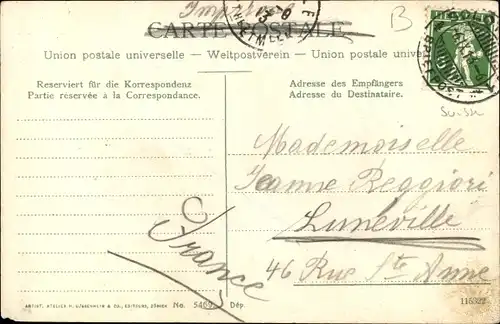 CARTE POSTALE
B
Union postale universelle – Weltpostverein – Union postale
Suisse
Reserviert für die Korrespondenz
Partie réservée à la Correspondance.
Adresse des Empfängers
Adresse du Destinataire.
Mademoiselle
Jeanne Reggiori
Lunéville
46 Rue Ste Anne
France
No.
Dép.
115322